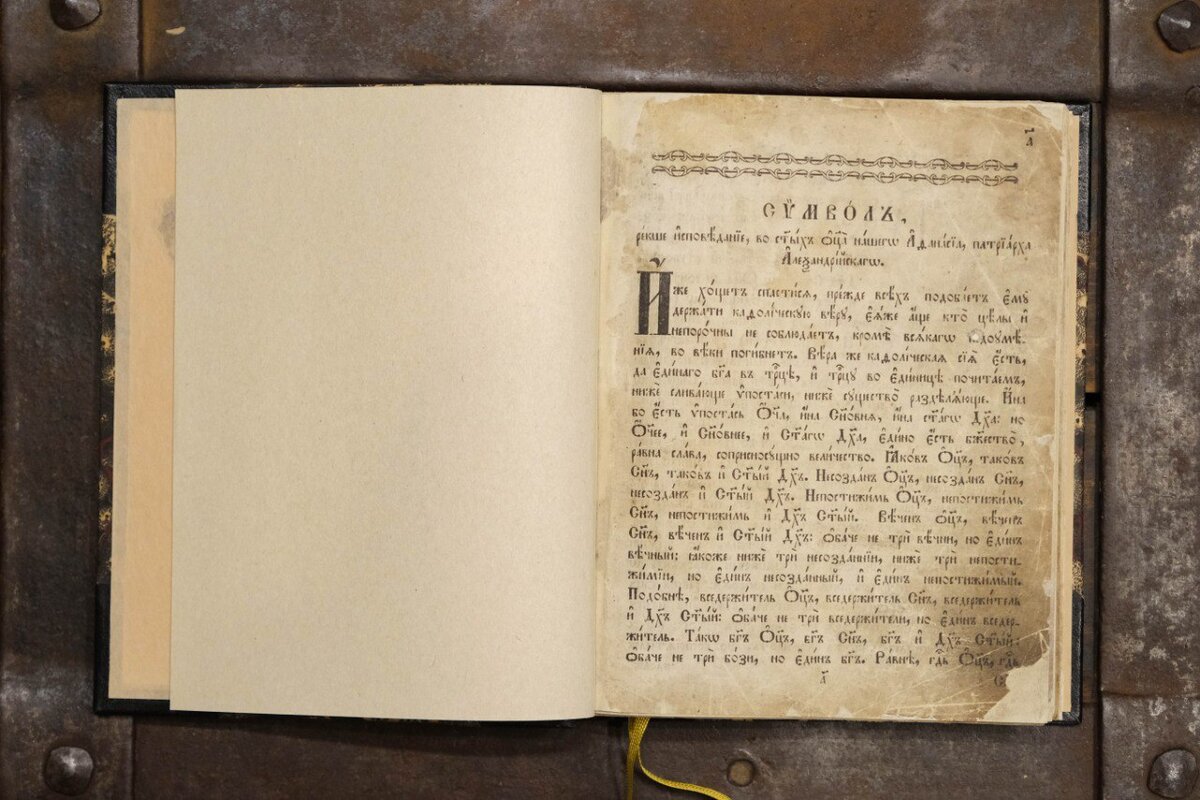 а҃
СѴ́МВО́ЛЪ,
ре́кше и҆сповѣ́данїе, во ст҃ы́хъ ѻ҆ц҃а̀ на́шегѡ А҆ѳана́сїа, патрїа́рха
А҆леѯандрі́йскагѡ.
И҆́же хо́щетъ спасти́сѧ, пре́жде всѣ́хъ подоба́етъ є҆мꙋ̀
держа́ти каѳоли́ческꙋю вѣ́рꙋ, є҆ѧ́же а҆́ще кто̀ цѣ́лы и҆
непоро́чны не соблюда́етъ, кромѣ̀ всѧ́кагѡ недоꙋмѣ́-
нїѧ, во вѣ́ки поги́бнетъ. Вѣ́ра же каѳоли́ческаѧ сїѧ̀ є҆́сть,
да є҆ди́наго бг҃а въ трⷪ҇цѣ, и҆ трⷪ҇цꙋ во є҆ди́ницѣ почита́емъ,
нижѐ слива́юще ѵ҆поста́си, нижѐ сꙋщество̀ раздѣлѧ́юще. И҆́на
бо є҆́сть ѵ҆поста́сь Ѻ҆́ч҃а, и҆́на Сн҃о́внѧ, и҆́на ст҃а́гѡ Дх҃а: но
Ѻ҆́ч҃ее, и҆ Сн҃о́внее, и҆ Ст҃а́гѡ Дх҃а, є҆ди́но є҆́сть бж҃ество̀,
ра́вна сла́ва, соприсносꙋ́щно вели́чество. Ꙗ҆ко́въ Ѻ҆ц҃ъ, тако́въ
Сн҃ъ, тако́въ и҆ Ст҃ы́й Дх҃ъ. Несозда́нъ Ѻ҆ц҃ъ, несозда́нъ Сн҃ъ,
несозда́нъ и҆ Ст҃ы́й Дх҃ъ. Непостижи́мь Ѻ҆ц҃ъ, непостижи́мь
Сн҃ъ, непостижи́мь и҆ Дх҃ъ Ст҃ы́й. Вѣ́ченъ ѻ҆ц҃ъ, вѣ́ченъ
Сн҃ъ, вѣ́ченъ и҆ Ст҃ы́й Дх҃ъ: ѻ҆ба́че не трѝ вѣ́чни, но є҆ди́нъ
вѣ́чный: ꙗ҆́коже нижѐ трѝ несозда́ннїи, нижѐ трѝ непости-
жи́мїи, но є҆ди́нъ несозда́нный, и҆ є҆ди́нъ непостижи́мый.
Подо́бнѣ, вседержи́тель Ѻ҆ц҃ъ, вседержи́тель Сн҃ъ, вседержи́тель
и҆ Дх҃ъ Ст҃ы́й: ѻ҆ба́че не трѝ вседержи́тели, но є҆ди́нъ вседер-
жи́тель. Та́кѡ бг҃ъ Ѻ҆ц҃ъ, бг҃ъ Сн҃ъ, бг҃ъ и҆ Дх҃ъ Ст҃ы́й:
ѻ҆ба́че не трѝ бо́зи, но є҆ди́нъ бг҃ъ. Ра́внѣ, гдⷭ҇ь Ѻ҆ц҃ъ, гдⷭ҇ь
а҃